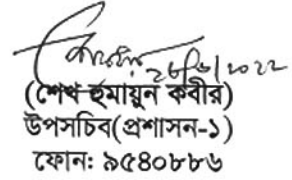 ২৮/৬/২০২২
(শেখ হুমায়ুন কবীর)
উপসচিব(প্রশাসন-১)
ফোন: ৯৫৪০৮৮৬